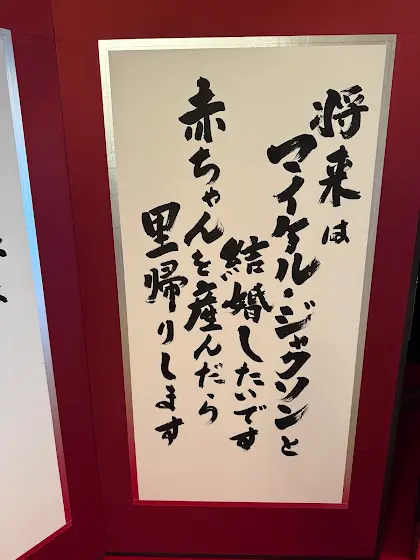 将来は
マイケル・ジャクソンと
結婚したいです
赤ちゃんを産んだら
里帰りします